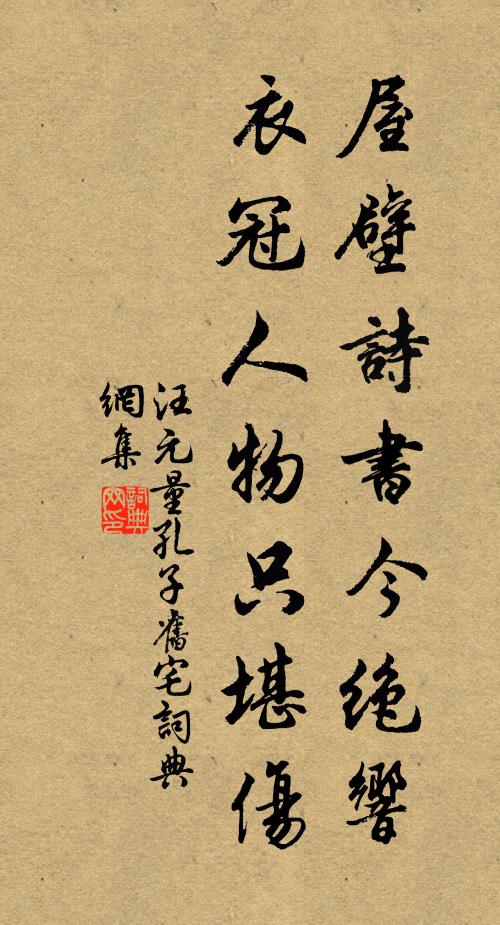 屋壁詩書今絕響
衣冠人物只堪傷
汪元量孔子舊宅詞典
網集
詞典
网印